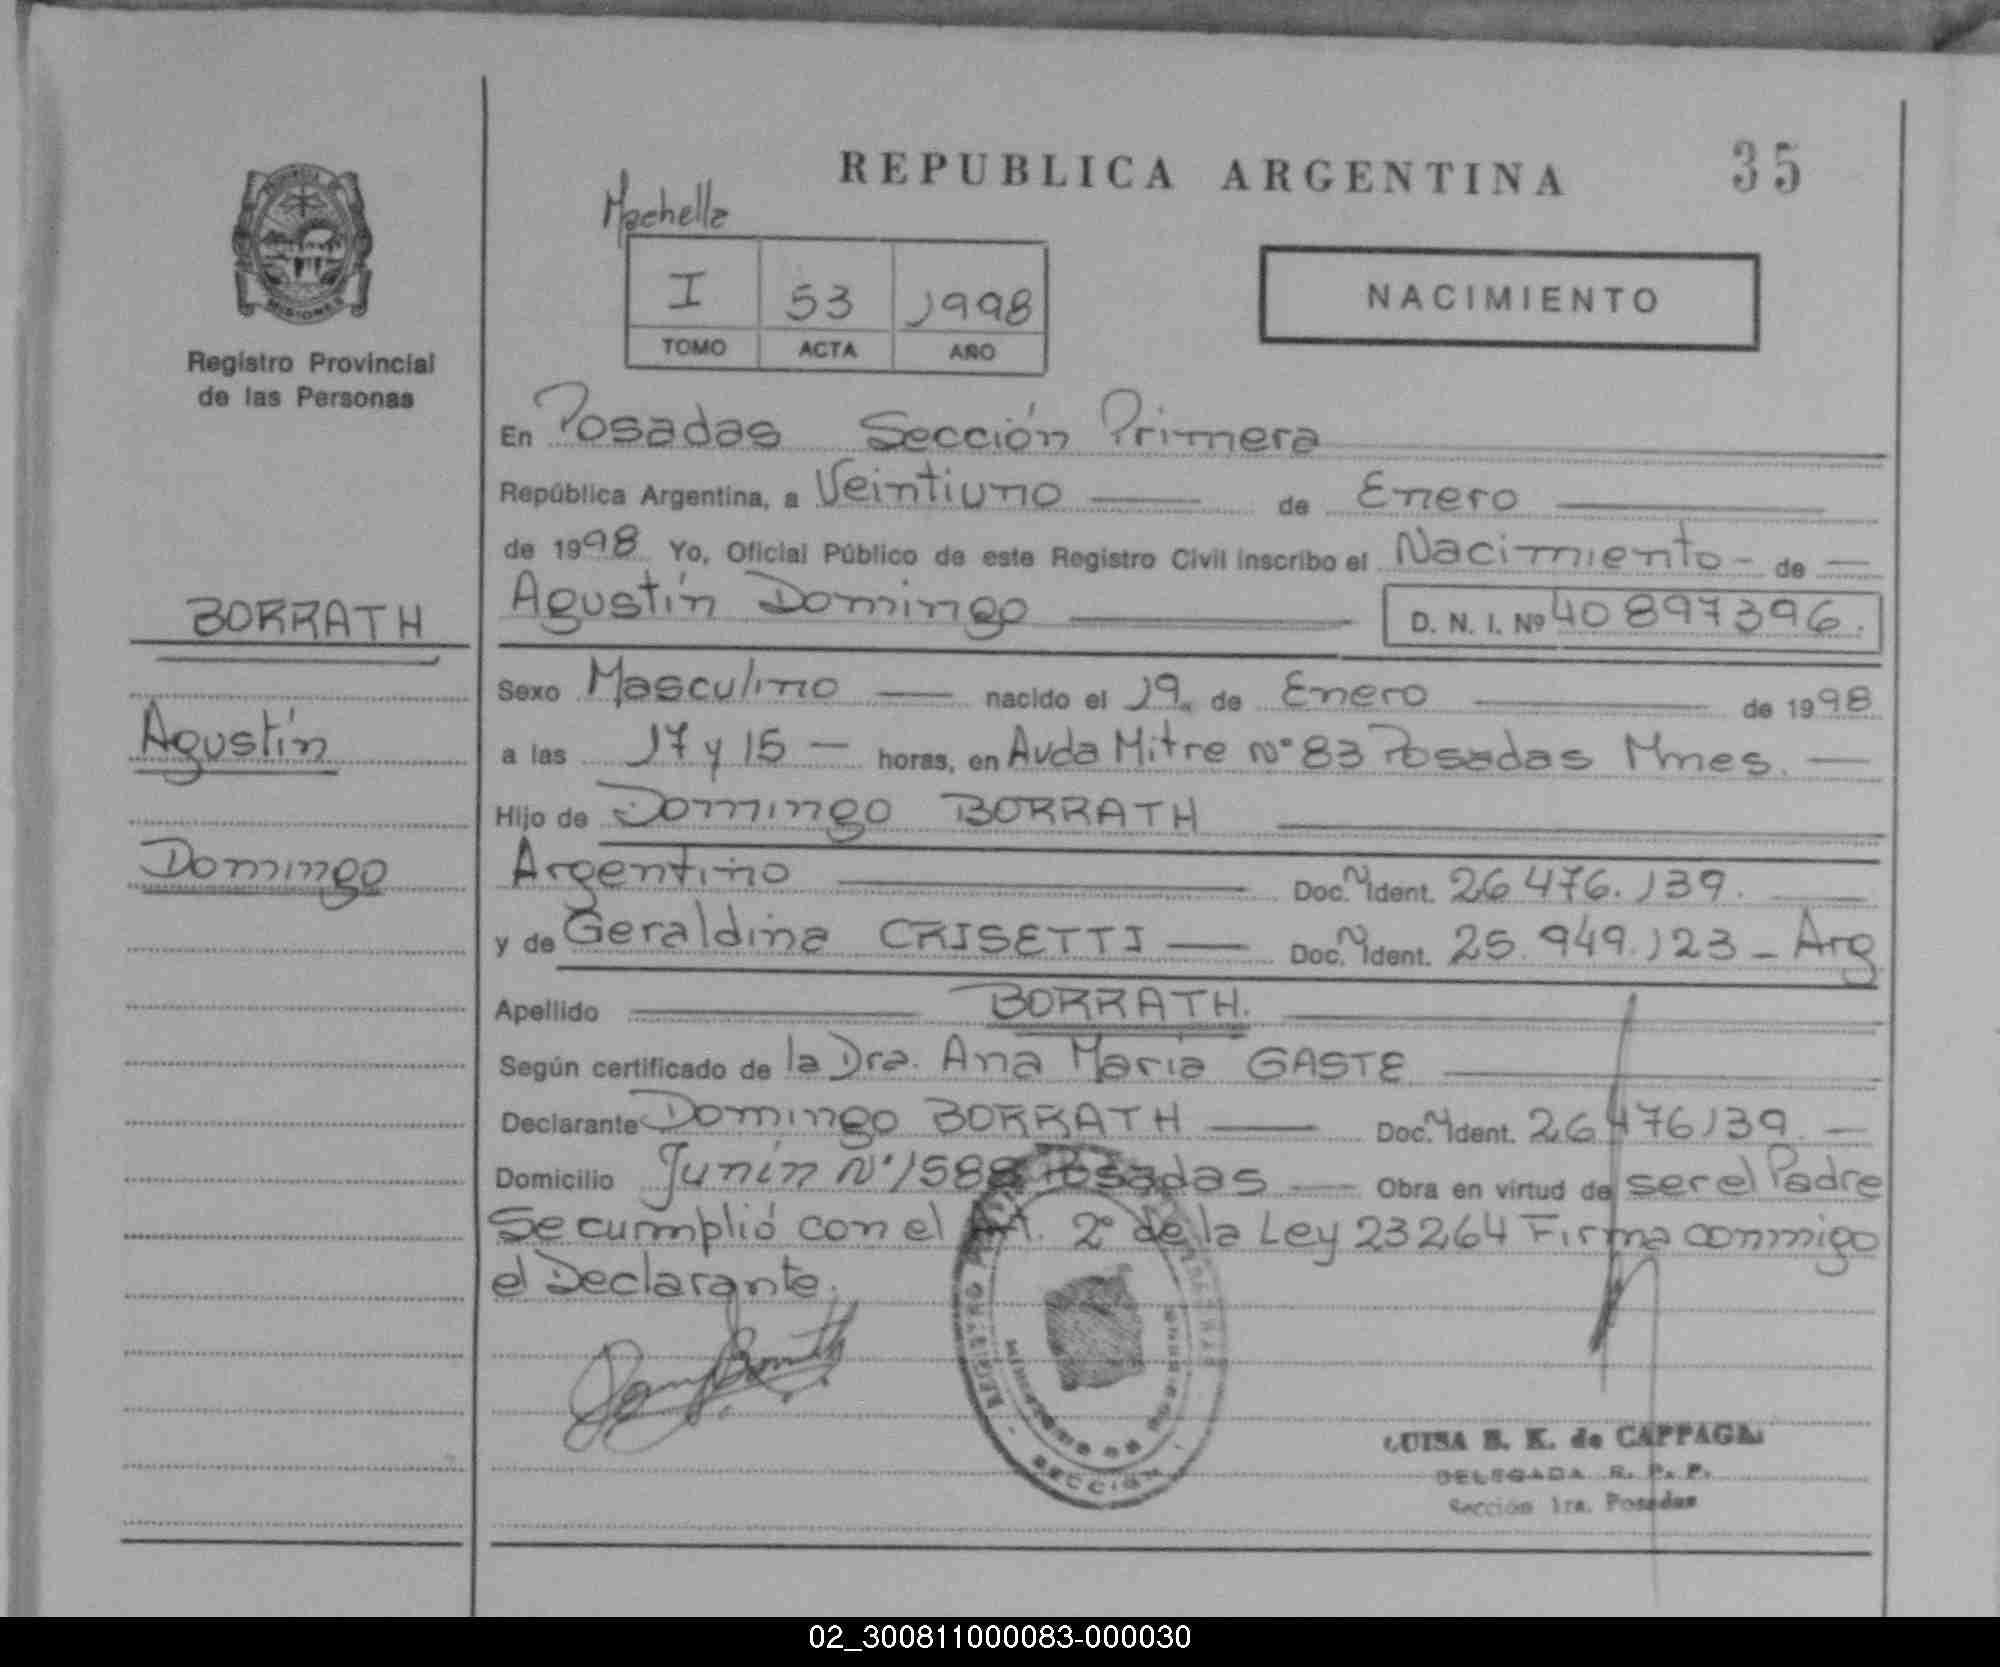 REPUBLICA ARGENTINA
35
Machella
I 53 1998
TOMO ACTA AÑO
NACIMIENTO
MISIONES
Registro Provincial
de las Personas
En Posadas Sección Primera
República Argentina, a Veintiuno de Enero
de 1998 Yo, Oficial Público de este Registro Civil inscribo el Nacimiento - de
BORRATH
Agustín Domingo D. N. I. Nº 40 897396.
Sexo Masculino nacido el 19 de Enero de 1998
Agustín
a las 17 y 15 horas, en Avda Mitre nº 83 Posadas Mnes.
Hijo de Domingo BORRATH
Domingo
Argentino Doc. N Ident. 26 476.139.
y de Geraldina CRISETTI Doc. N Ident. 25.949.123 - Arg
Apellido BORRATH.
Según certificado de la Dra. Ana Maria GASTE
Declarante Domingo BORRATH Doc. N Ident. 26476139.
Domicilio Junín Nº 1588 Posadas Obra en virtud de ser el Padre
Se cumplió con el Art. 2º de la Ley 23264 Firma conmigo
el Declarante.
SECCION
LUISA B. K. de CAPPAGLI
DELEGADA R. P. P.
Sección 1ra. Posadas
02_300811000083-000030